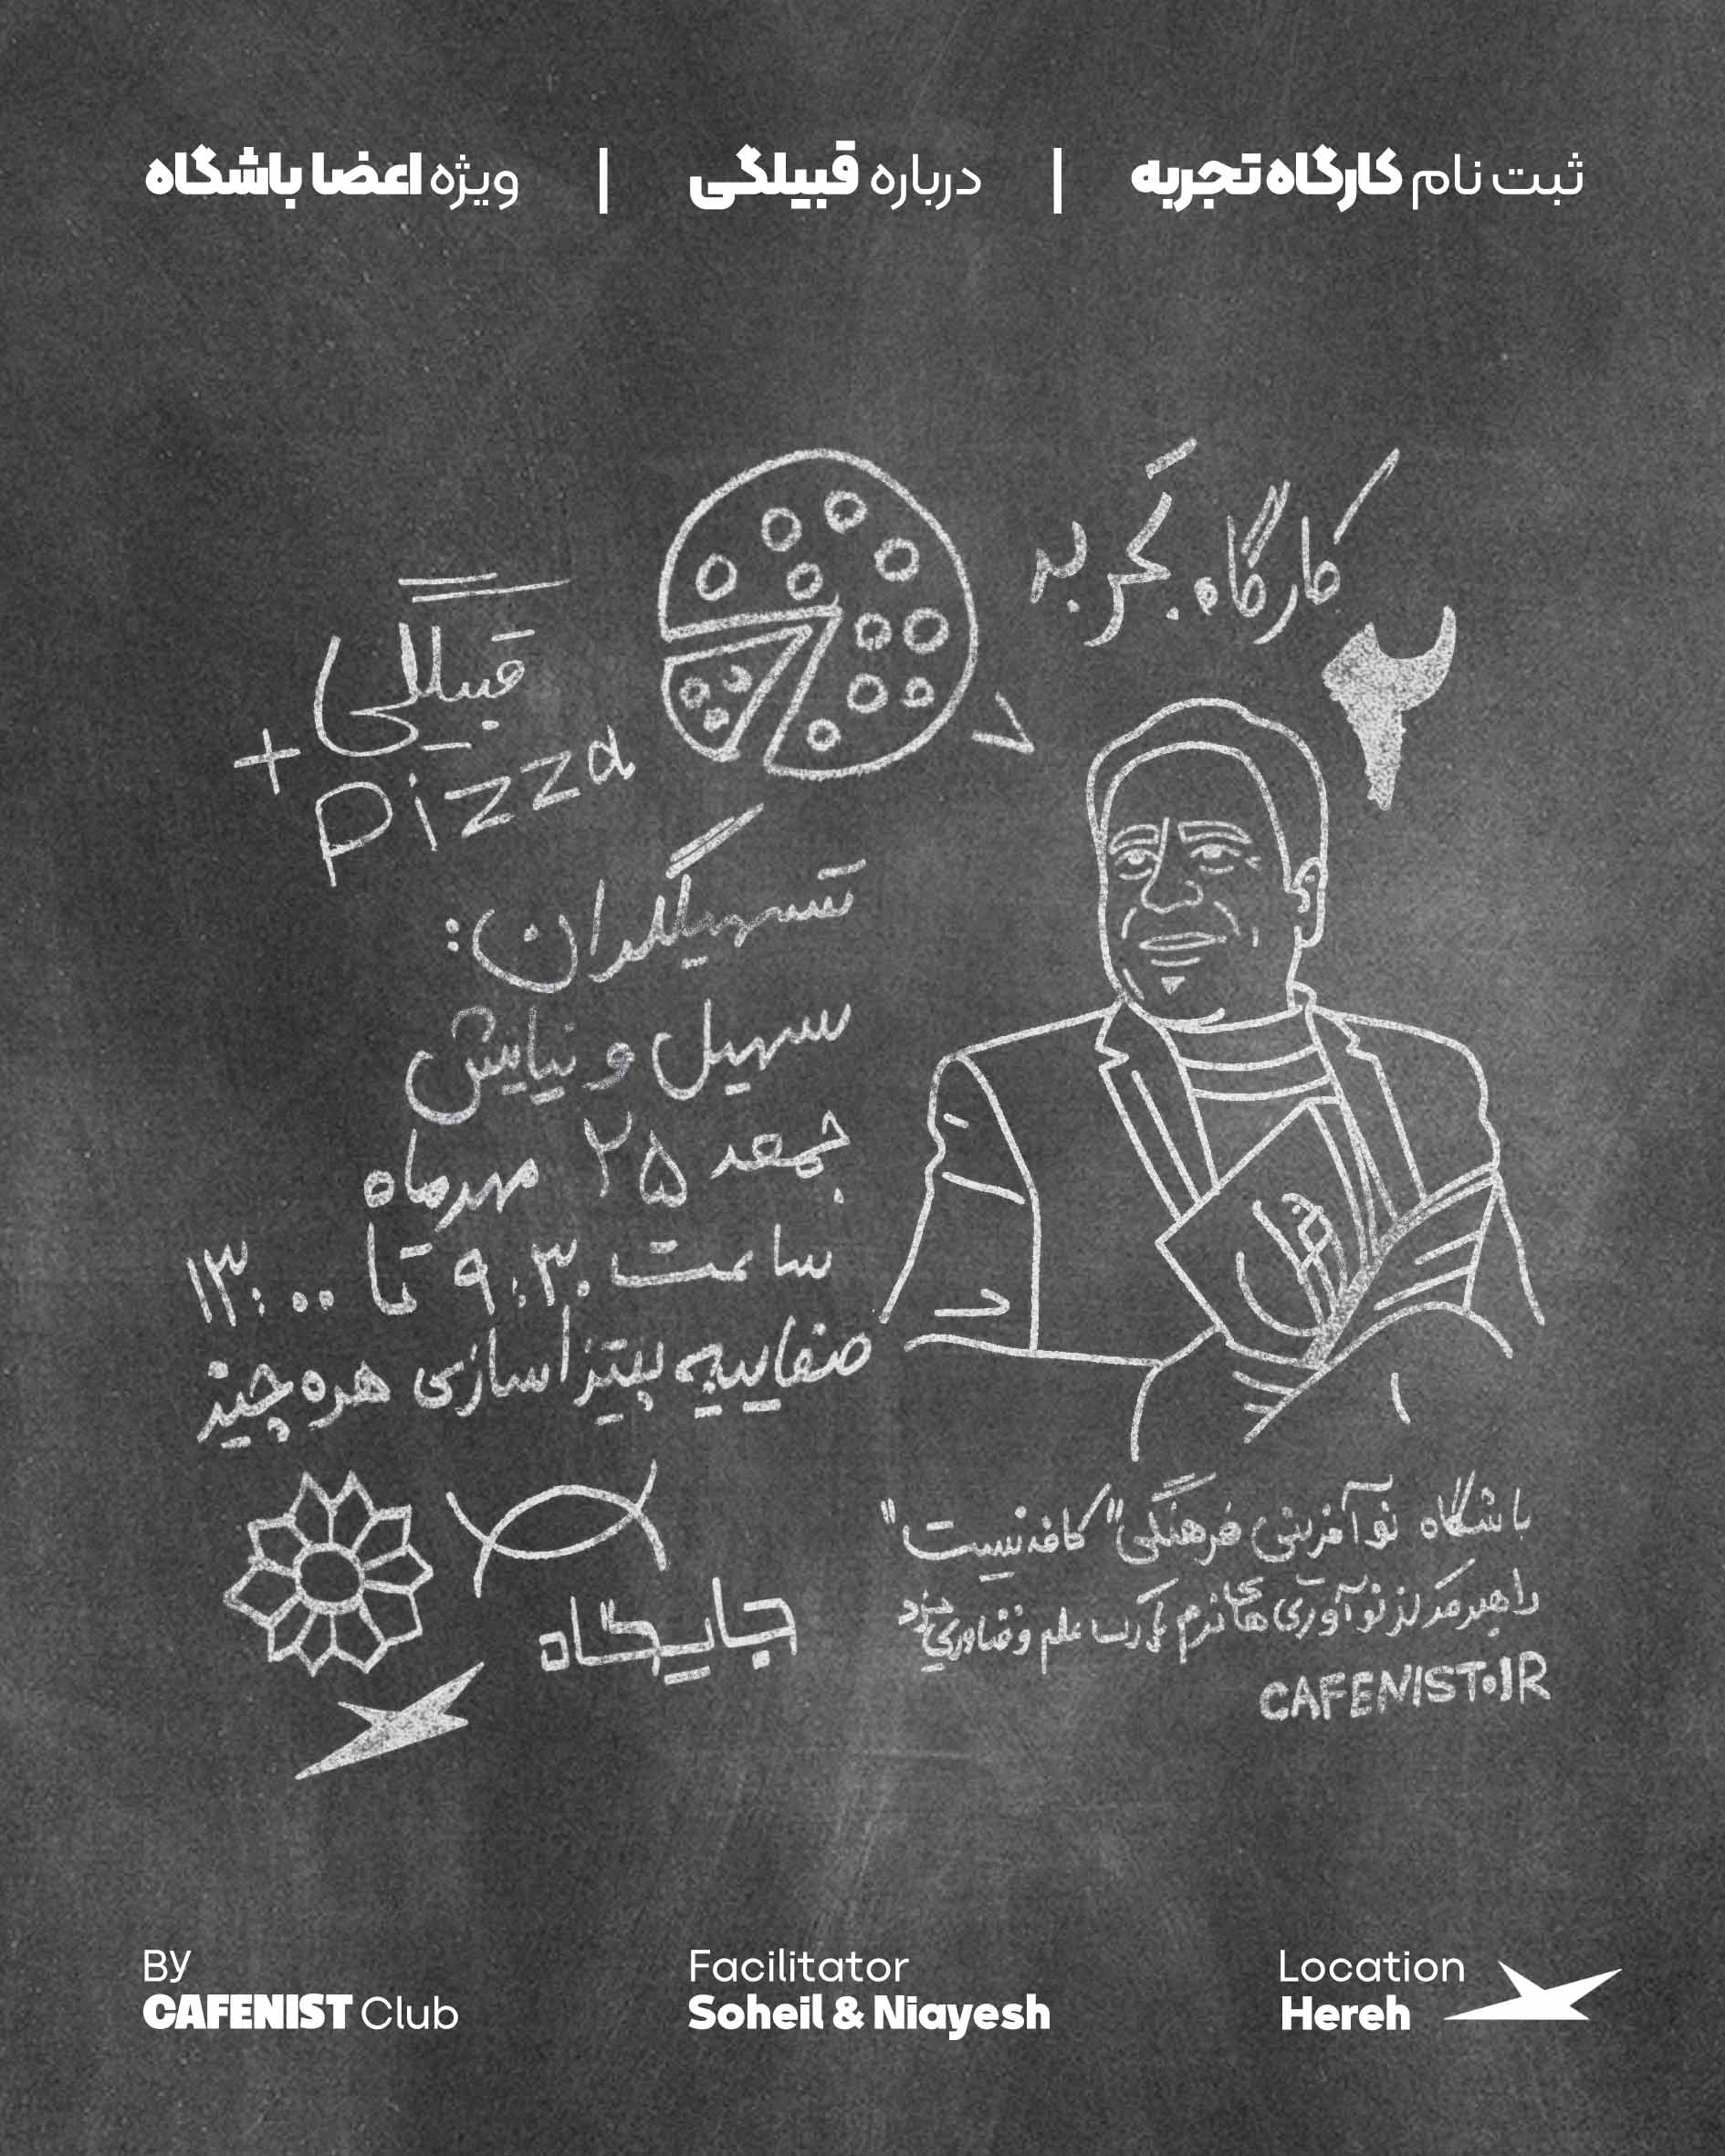 ثبت نام کارگاه تجربه | درباره قبیلگی | ویژه اعضا باشگاه
کارگاه تجربه
۲
قبیلگی
+ Pizza
تسهیلگران:
سهیل و نیایش
جمعه ۲۵ مهرماه
ساعت ۹:۳۰ تا ۱۳:۰۰
صفاییه پیتزاسازی هره چیز
باشگاه نوآفرینی فرهنگی "کافه نیست"
راهبر مرکز نوآوری های نرم پارک علم و فناوری یزد
CAFENIST.IR
جایگاه
By
CAFENIST Club
Facilitator
Soheil & Niayesh
Location
Hereh